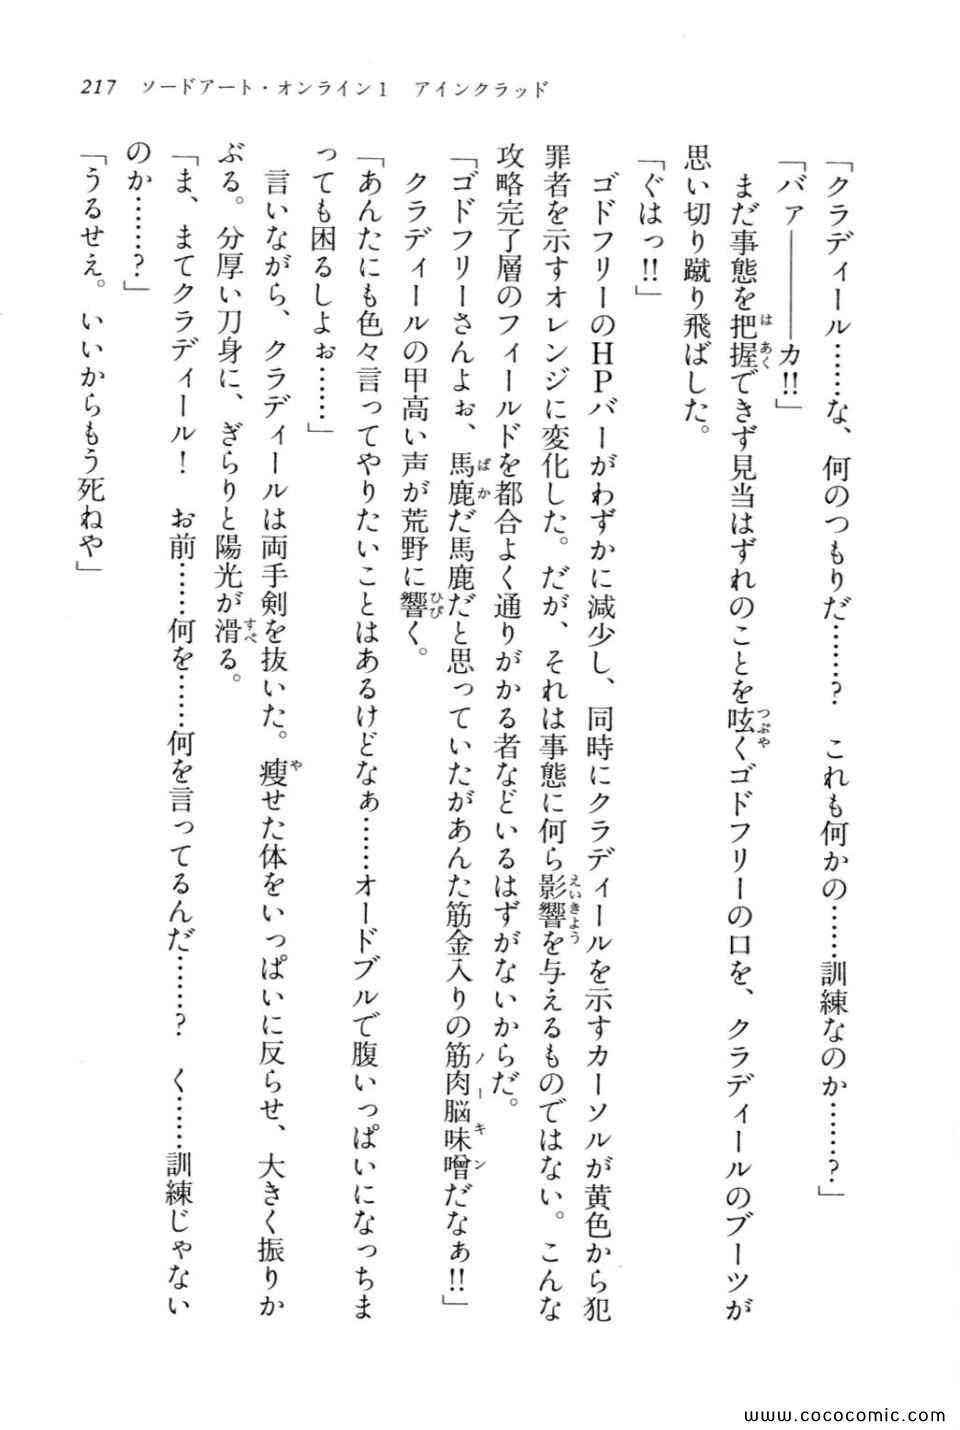 217 ソードアート・オンライン1 アインクラッド
「クラディール……な、何のつもりだ……? これも何かの……訓練なのか……?」
「バァ――――カ!!」
まだ事態を把握できず見当はずれのことを呟くゴドフリーの口を、クラディールのブーツが
思い切り蹴り飛ばした。
「ぐはっ!!」
ゴドフリーのHPバーがわずかに減少し、同時にクラディールを示すカーソルが黄色から犯
罪者を示すオレンジに変化した。だが、それは事態に何ら影響を与えるものではない。こんな
攻略完了層のフィールドを都合よく通りがかる者などいるはずがないからだ。
「ゴドフリーさんよぉ、馬鹿だ馬鹿だと思っていたがあんた筋金入りの筋肉脳味噌だなぁ!!」
クラディールの甲高い声が荒野に響く。
「あんたにも色々言ってやりたいことはあるけどなぁ……オードブルで腹いっぱいになっちま
っても困るしよぉ……」
言いながら、クラディールは両手剣を抜いた。痩せた体をいっぱいに反らせ、大きく振りか
ぶる。分厚い刀身に、ぎらりと陽光が滑る。
「ま、まてクラディール! お前……何を……何を言ってるんだ……? く……訓練じゃない
のか……?」
「うるせえ。いいからもう死ねや」
www.cococomic.com